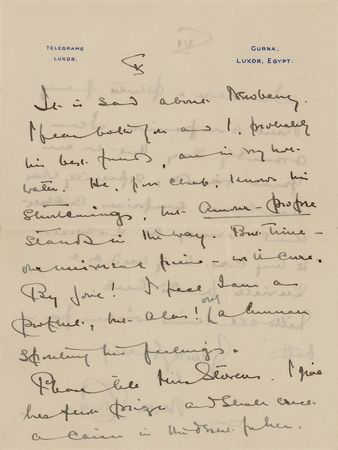 TELEGRAMS
LUXOR.
GURNA.
LUXOR, EGYPT.
V
It is sad about Newberry.
I fear both you and I, probably
his best friends, are in very hot
water. He, poor chap, knows his
shortcomings, but Amour-propre
stands in the way. But time –
our universal friend – will cure.
By Jove! I feel I am a
prophet, but alas! only a human
spouting his feelings.
Please tell Miss Stevens. I give
her first prize and shall erect
a cairn in the desert